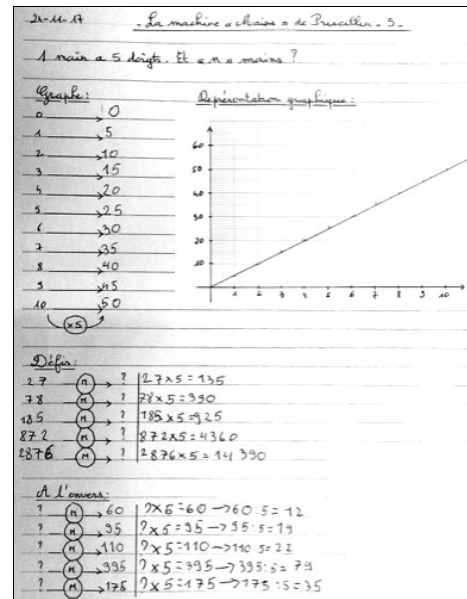 24-11-17 - La machine « Mains » de Priscillia - S -
1 main a 5 doigts. Et « n » mains ?
Graphe :
0 → 0
1 → 5
2 → 10
3 → 15
4 → 20
5 → 25
6 → 30
7 → 35
8 → 40
9 → 45
10 → 50
×5
Représentation graphique :
60
50
40
30
20
10
1 2 3 4 5 6 7 8 9 10
Défis :
27 M → ? 27×5=135
78 M → ? 78×5=390
185 M → ? 185×5=925
872 M → ? 872×5=4360
2876 M → ? 2876×5=14 390
A l'envers :
? M → 60 ?×5=60 → 60:5=12
? M → 95 ?×5=95 → 95:5=19
? M → 110 ?×5=110 → 110:5=22
? M → 395 ?×5=395 → 395:5=79
? M → 175 ?×5=175 → 175:5=35